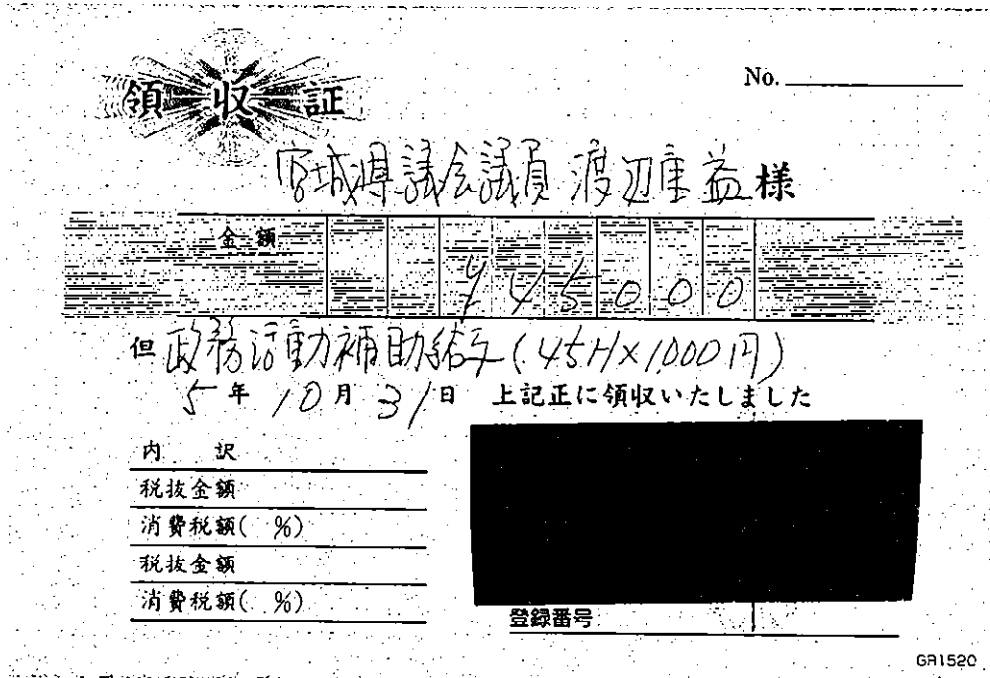 領収証
No.
宮城県議会議員 渡辺重益様
金額 ¥45000
但 政務活動補助給与(45H×1000円)
5年10月31日 上記正に領収いたしました
内訳
税抜金額
消費税額( %)
税抜金額
消費税額( %)
登録番号
GR1520